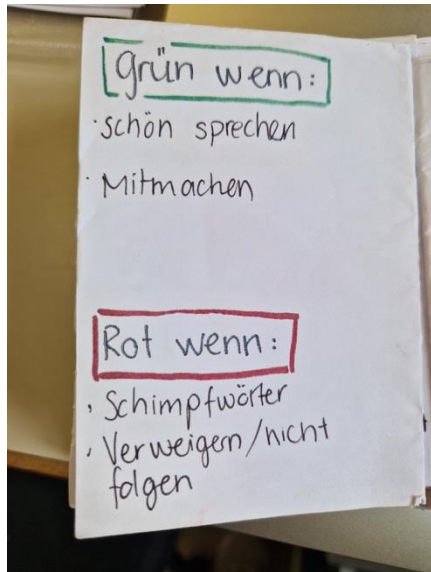 Grün wenn:
· schön sprechen
· Mitmachen
Rot wenn:
· Schimpfwörter
· Verweigern/nicht
folgen